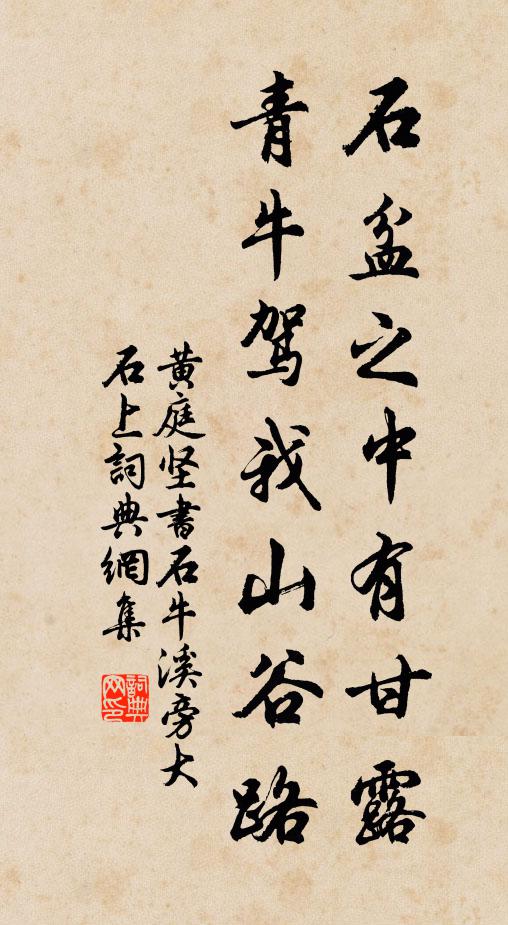 石盆之中有甘露
青牛驾我山谷路
黄庭坚书石牛溪旁大
石上詞典網集
詞典
网印